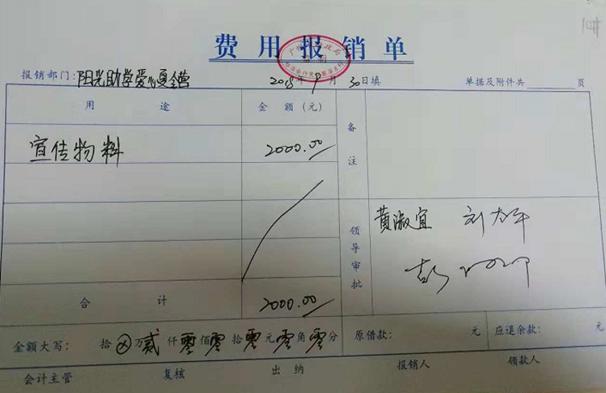 费用报销单
报销部门：阳光助学爱心夏令营 2018年9月30日填 单据及附件共 页
用途 金额（元） 备注
宣传物料 2000.00
领导审批 黄淑宜
合计 2000.00
金额大写： 拾⊗万贰仟零佰零拾零元零角零分 原借款： 元 应退余款： 元
会计主管 复核 出纳 报销人 领款人